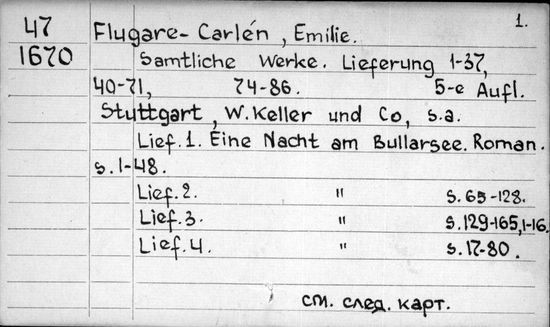 1.
47 Flugare-Carlén, Emilie.
1670 Samtliche Werke. Lieferung 1-37,
40-71, 74-86. 5-e Aufl.
Stuttgart, W. Keller und Co, s.a.
Lief. 1. Eine Nacht am Bullarsee. Roman.
s. 1-48.
Lief. 2. " S. 65-128.
Lief. 3. " S. 129-165, 1-16.
Lief. 4. " S. 17-80.
см. след. карт.